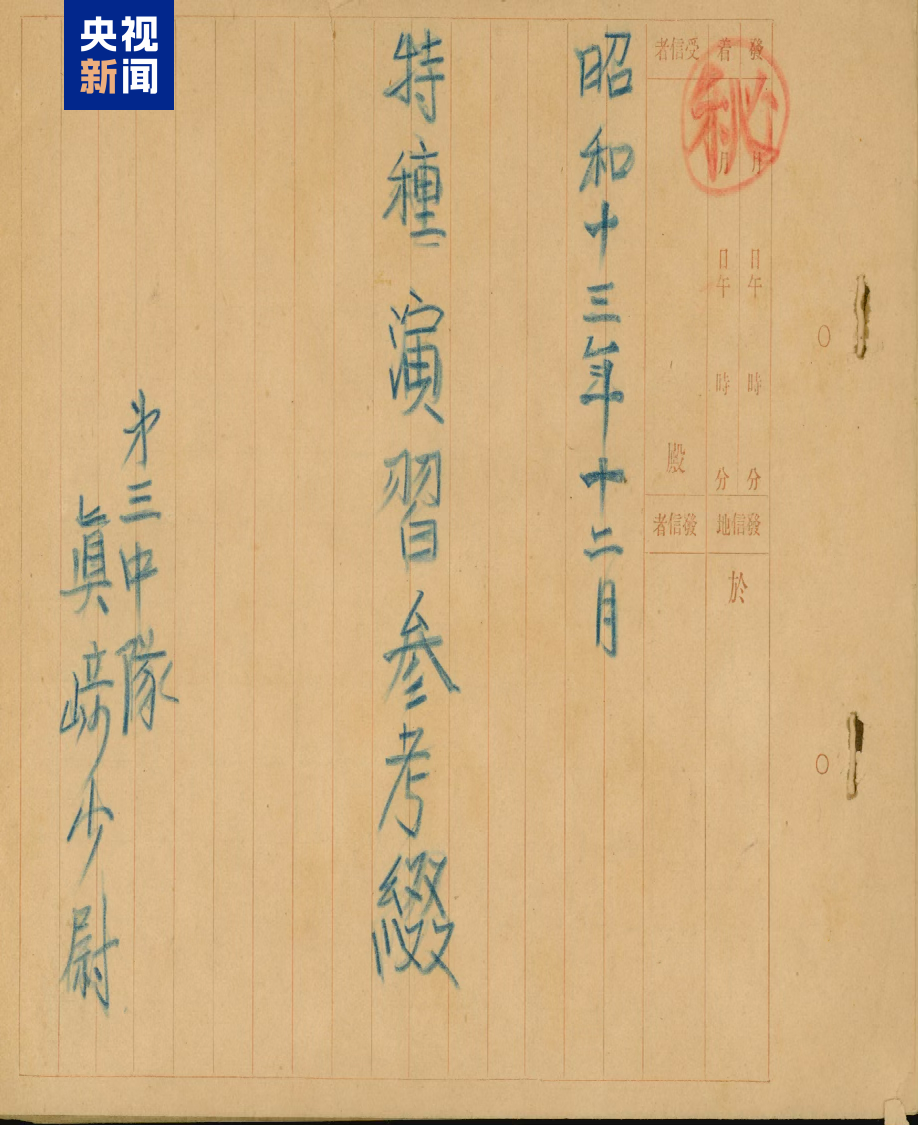 央视
新闻
秘
發 月 日 午 時 分
着 月 日 午 時 分
受信者 殿
發信地 於
發信者
昭和十三年十二月
特種演習参考綴
第三中隊
眞崎少尉